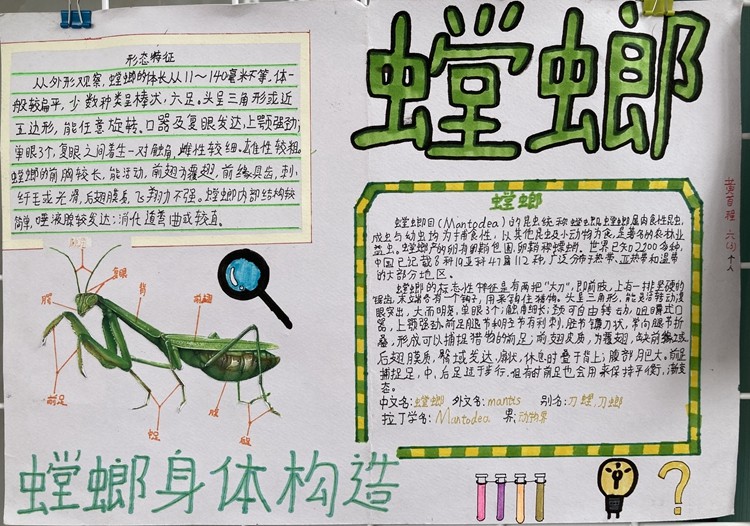 形态特征
从外形观察,螳螂的体长从11～140毫米不等。体一
般较扁平,少数种类呈棒状,六足。头呈三角形或近
五边形,能任意旋转、口器及复眼发达,上颚强劲;
单眼3个,复眼之间着生一对触角,雌性较细,雄性较粗。
螳螂的前胸较长,能活动,前翅为覆翅,前缘具齿,刺,
纤毛或光滑,后翅膜质,飞翔力不强。螳螂内部结构较
简单,唾液腺较发达;消化道弯曲或较直。
螳螂
螳螂
螳螂目(Mantodea)的昆虫统称螳螂
成虫与幼虫均为捕食性,以其他昆虫及小动物为食,是著名的农林业
益虫。螳螂产的卵有卵鞘包围,卵鞘称螵蛸。世界已知2200多种,
中国已记载8科19亚科47属112种,广泛分布热带、亚热带和温带
的大部分地区。
螳螂的标志性特征是有两把"大刀",即前肢,上有一排坚硬的
锯齿,末端各有一个钩子,用来钩住猎物。头呈三角形,能灵活转动,复
眼突出,大而明亮,单眼3个;触角细长;颈可自由转动,咀嚼式口
器,上颚强劲。前足腿节和胫节有利刺,胫节镰刀状,常向腿节折
叠,形成可以捕捉猎物的前足;前翅皮质,为覆翅,缺前缘域,
后翅膜质,臀域发达,扇状,休息时叠于背上;腹部肥大。前足
捕捉足,中,后足适于步行.但有时前足也会用来保持平衡,渐变
态。
中文名:螳螂 外文名:mantis 别名:刀螳,刀螂
拉丁学名:Mantodea 界:动物界
黄百程 六(3) 个人
复眼
前翅
前足
腹
螳螂身体构造
?